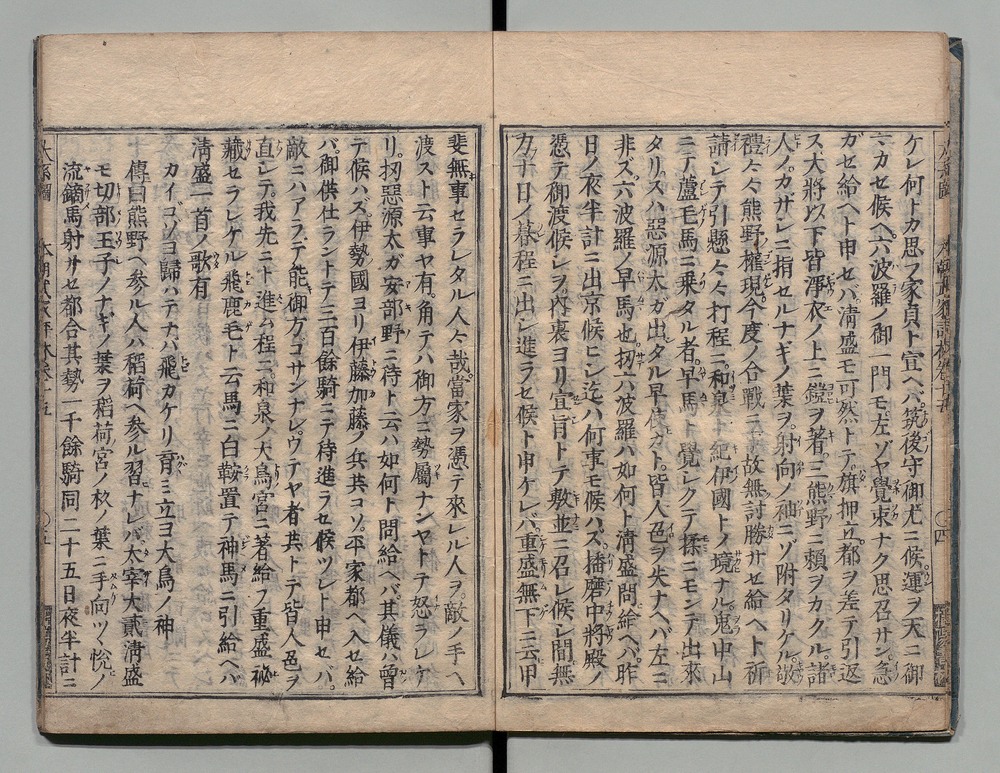 ケレ何トカ思フ家貞ト宣ヘバ筑後守御尤ニ候運ヲ天ニ御
マカセ候ヘ六波羅ノ御一門モ左ソヤ覺束ナク思召サン急
ガセ給ヘト申セバ清盛モ可然トテ旗押立都ヲ差テ引返
ス大將以下皆淨衣ノ上ニ鎧ヲ著ニ熊野ニ頼ヲカクル諸
人ノカサシニ指セルナギノ葉ヲ射向ノ袖ニソ附タリケル敬
禮々々熊野權現今度ノ合戰ニ故無討勝サセ給ヘト祈
請シテ引懸々々打程ニ和泉ト紀伊國トノ境ナル鬼中山
ニテ蘆毛馬ニ乗タル者早馬ト覺シクテ揉ニモンデ出來
タリスハ惡源太ガ出タル早使カト皆人色ヲ失ナヘバ左ニ
非ズ六波羅ノ早馬也扨六波羅ハ如何ト清盛問給ヘバ昨
日ノ夜半計ニ出京候ヒシ迄ハ何事モ候ハズ播磨中將殿ノ
憑テ御渡候シヲ内裏ヨリ宣旨トテ敷並ニ召レ候シ間無
力十日ノ暮程ニ出シ進ラセ候ト申ケレバ重盛無下ニ云甲
斐無事セラレタル人々哉當家ヲ憑テ來レル人ヲ敵ノ手ヘ
渡スト云事ヤ有角テハ御方ニ勢屬ナンヤトテ怒ラレケ
リ扨惡源太ガ安部野ニ待ト云ハ如何ト問給ヘバ其儀ハ曽
テ候ハズ伊勢國ヨリ伊藤加藤ノ兵共コソ平家都ヘ入セ給
バ御供仕ラントテ三百餘騎ニテ待進ラセ候ツレト申セバ
敵ニハアラテ能御方コサンナレウテヤ者共トテ皆人色ヲ
直シテ我先ニト進ム程ニ和泉ノ大鳥宮ニ著給フ重盛祕
藏セラレケル飛鹿毛ト云馬ニ白鞍置テ神馬ニ引給ヘバ
清盛一首ノ歌有
カイコソヨ歸ハテナバ飛カケリ育ミ立ヨ大鳥ノ神
傳曰熊野ヘ参ル人ハ稲荷ヘ参ル習ナレバ太宰大貳清盛
モ切部王子ノナギノ葉ヲ稲荷宮ノ杉ノ葉ニ手向ツヽ悦ノ
流鏑馬射サセ都合其勢一千餘騎同二十五日夜半計ニ